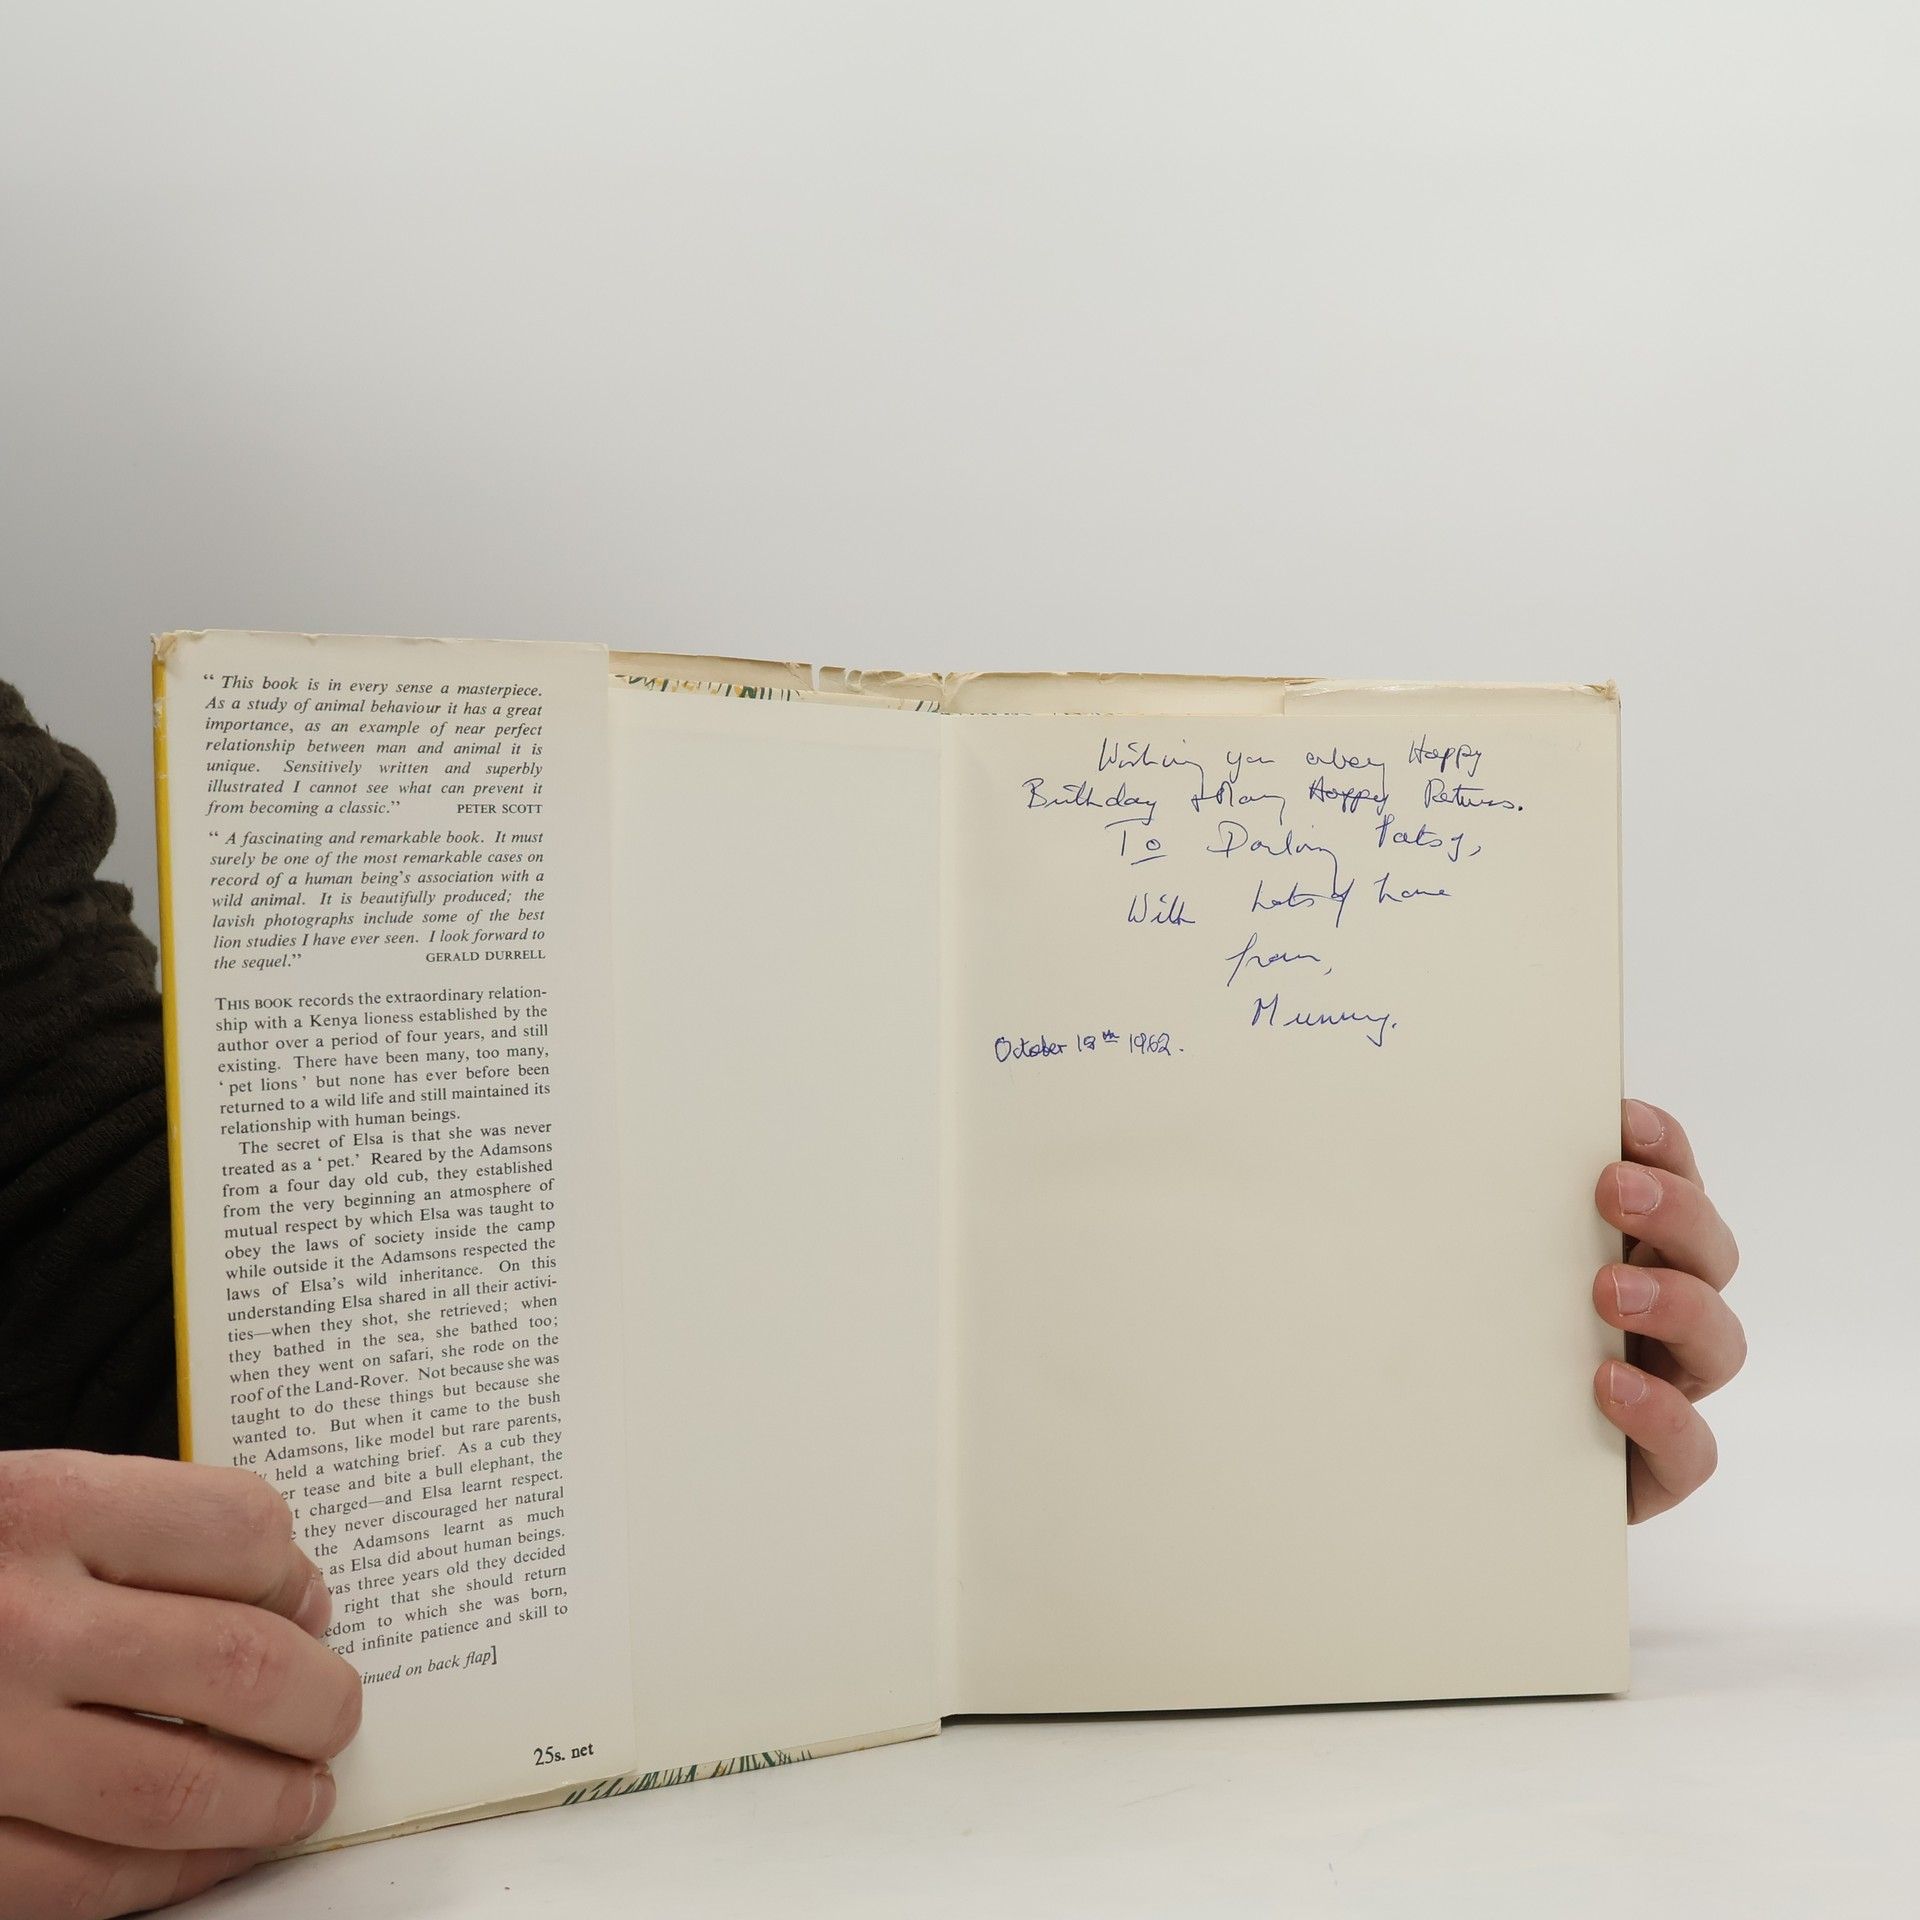 “ This book is in every sense a masterpiece.
As a study of animal behaviour it has a great
importance, as an example of near perfect
relationship between man and animal it is
unique. Sensitively written and superbly
illustrated I cannot see what can prevent it
from becoming a classic.” PETER SCOTT
“ A fascinating and remarkable book. It must
surely be one of the most remarkable cases on
record of a human being’s association with a
wild animal. It is beautifully produced; the
lavish photographs include some of the best
lion studies I have ever seen. I look forward to
the sequel.” GERALD DURRELL
THIS BOOK records the extraordinary relation-
ship with a Kenya lioness established by the
author over a period of four years, and still
existing. There have been many, too many,
‘ pet lions ’ but none has ever before been
returned to a wild life and still maintained its
relationship with human beings.
The secret of Elsa is that she was never
treated as a ‘ pet.’ Reared by the Adamsons
from a four day old cub, they established
from the very beginning an atmosphere of
mutual respect by which Elsa was taught to
obey the laws of society inside the camp
while outside it the Adamsons respected the
laws of Elsa’s wild inheritance. On this
understanding Elsa shared in all their activi-
ties—when they shot, she retrieved; when
they bathed in the sea, she bathed too;
when they went on safari, she rode on the
roof of the Land-Rover. Not because she was
taught to do these things but because she
wanted to. But when it came to the bush
the Adamsons, like model but rare parents,
held a watching brief. As a cub they
tease and bite a bull elephant, the
charged—and Elsa learnt respect.
they never discouraged her natural
the Adamsons learnt as much
as Elsa did about human beings.
was three years old they decided
right that she should return
to which she was born,
infinite patience and skill to
on back flap]
25s. net
Wishing you a very Happy
Birthday & Many Happy Returns.
To Darling Patsy,
With Lots of Love
from,
Mummy.
October 1962.